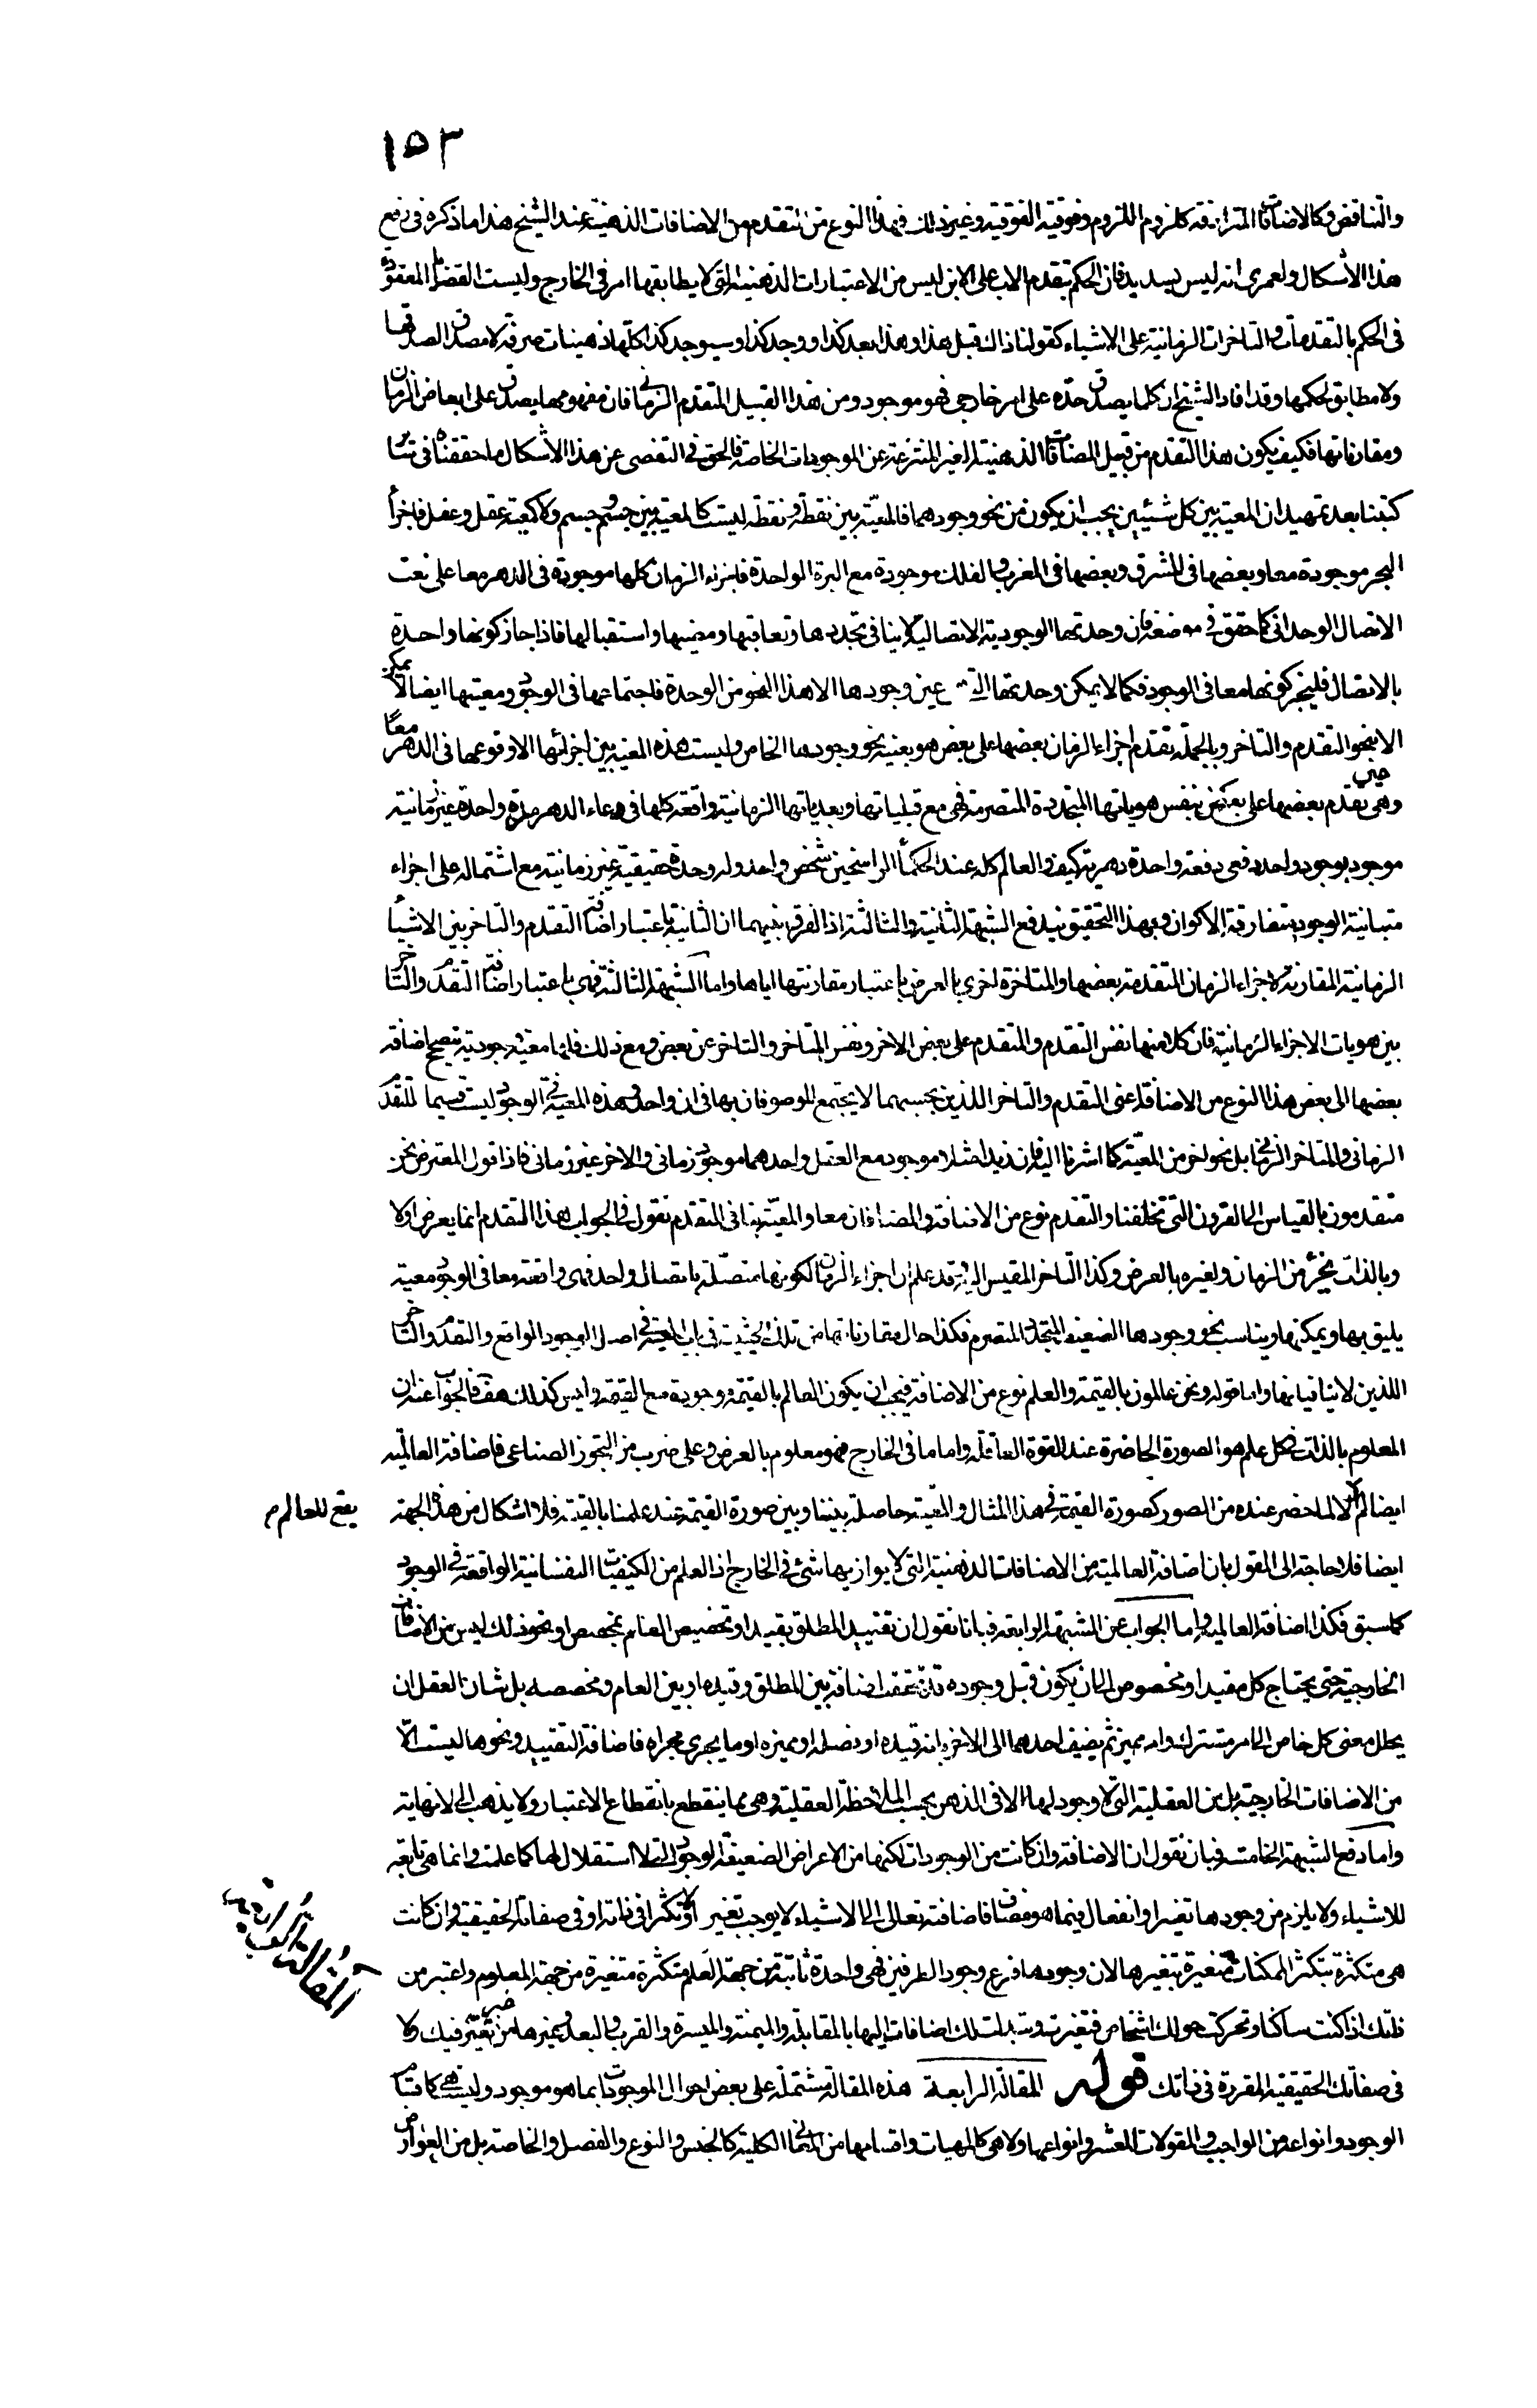 ١٥٣
والتناقض وكالاضافات المترادفة كلزوم اللزوم وفوقية الفوقية وغير ذلك فهذا النوع من التقدم من الاضافات الذهنية عند الشيخ هذا ما ذكره فى رفع
هذا الاشكال ولعمرى انه ليس بسديد فان الحكم بتقدم الاب على الابن ليس من الاعتبارات الذهنية التى لا يطابقها امر فى الخارج وليست القضايا المعقودة
فى الحكم بالتقدمات والتاخرات الزمانية على الاشياء كقولنا ذاك قبل هذا وهذا بعد كذا ووجد كذا وسيوجد كذا كلها ذهنيات صرفة لا مصداق لصدقها
ولا مطابق لحكمها وقد افاد الشيخ ان كلما يصدق حده على امر خارجى فهو موجود ومن هذا القبيل المتقدم الزمانى فان مفهومها يصدق على ابعاض الزمان
ومقارناتها فكيف يكون هذا التقدم من قبيل المضافات الذهنية الغير المنتزعة عن الموجودات الخاصة فالحق فى التفصى عن هذا الاشكال ما حققناه فى سائر
كتبنا بعد تمهيد ان المعية بين كل شيئين يجب ان يكون من نحو وجودهما فالمعية بين نقطة ونقطة ليست كالمعية بين جسم وجسم ولا كمعية عقل وعقل فاجزأ
البحر موجودة معا وبعضها فى المشرق وبعضها فى المغرب والفلك موجودة مع البرة الواحدة فاجزاء الزمان كلها موجودة فى الدهر معا على نعت
الاتصال الوحدانى كما حقق فى موضعه فان وحدتها الوجودية الاتصالية لا ينافى تجددها وتعاقبها ومضيها واستقبالها فاذا جاز كونها واحدة
بالاتصال فليجز كونها معا فى الوجود فكما لا يمكن وحدتها التى عين وجودها الا هذا النحو من الوحدة فاجتماعها فى الوجود ومعيتها ايضا لا يمكن
الا بنحو التقدم والتاخر وبالجملة تقدم اجزاء الزمان بعضها على بعض هو بعينه نحو وجودها الخاص وليست هذه المعية بين اجزائها الا وقوعها فى الدهر معًا
وهى تقدم بعضها على بعض بنفس هوياتها المتجددة المتصرمة فهى مع قبلياتها وبعدياتها الزمانية واقعة كلها فى وعاء الدهر مرة واحدة غير زمانية
موجود بوجود واحد دفعى دفعة واحدة دهرية كيف والعالم كله عند الحكمأ الراسخين شخص واحد وله وحدة حقيقية غير زمانية مع اشتماله على اجزاء
متبانية الوجود متفارقة الاكوان وبهذا التحقيق يندفع الشبهة الثانية والثالثة اذ الفرق بينهما ان الثانية باعتبار اضافة التقدم والتاخر بين الاشيأ
الزمانية المقارنة لاجزاء الزمان المتقدمة بعضها والمتاخرة اخرى بالعرض باعتبار مقارنتها اياها واما الشبهة الثالثة فهى باعتبار اضافة التقدم والتاخر
بين هويات الاجزاء الزمانية فان كلا منها نفس التقدم والمتقدم على بعض الاخر ونفس المتاخر والتاخر عن بعض ومع ذلك فلها معية وجودية تصحح اضافة
بعضها الى بعض هذا النوع من الاضافة اعنى التقدم والتاخر اللذين بحسبهما لا يجتمع الموصوفان بهما فى ان واحد وهذه المعية فى الوجود ليست قسيما للتقدم
الزمانى والمتاخر الزمانى بل نحو اخر من المعية كما اشرنا اليه فان زيدا مثلا موجود مع العقل واحدهما موجود زمانى والاخر غير زمانى فاذا قول المعترض نحن
متقدمون بالقياس الى القرون التى تخلفنا والتقدم نوع من الاضافة والمضافان معا والمعية تنافى التقدم نقول فى الجواب هذا التقدم انما يعرض اولا
وبالذات لجزء من الزمان ولغيره بالعرض وكذا التاخر المقيس اليه وقد علم ان اجزاء الزمان لكونها متصلة باتصال واحد فهى واقعة معا فى الوجود معية
يليق بها ويمكنها ويناسب نحو وجودها الضعيف المتجدد المتصرم فكذا حال مقارناتها من تلك الحيثية فى باب المعية فى اصل الوجود الواقع والتقدم والتاخر
اللذين لا ينافيانها واما قوله ونحن عالمون بالقيمة والعلم نوع من الاضافة فيجب ان يكون العالم بالقيمة وجوده مع القيمة وليس كذلك هف فالجواب عنه ان
المعلوم بالذات فى كل علم هو الصورة الحاضرة عند القوة العاقلة واما ما فى الخارج فهو معلوم بالعرض وعلى ضرب من التجوز الصناعى فاضافة العالمية
ايضا لم الا لما حضر عنده من الصور كصورة القيمة فى هذا المثال والمعية حاصلة بيننا وبين صورة القيمة عند علمنا بالقيمة فلا اشكال من هذه الجهة
يقع للعالم م
ايضا فلا حاجة الى القول بان اضافة العالمية من الاضافات الذهنية التى لا يوازيها شئ فى الخارج اذ العلم من الكيفيات النفسانية الواقعة فى الوجود
كما سبق فكذا اضافة العالمية واما الجواب عن الشبهة الرابعة فبانا نقول ان تقييد المطلق بقيد او تخصيص العام بمخصص او نحو ذلك ليس من الاضافات
الخارجية حتى يحتاج كل مقيد او مخصوص الى ان يكون قبل وجوده قد تحققت اضافة بين المطلق وقيده او بين العام ومخصصه بل شان العقل ان
يحلل معنى كل خاص الى امر مشترك وامر مميز ثم يضيف احدهما الى الاخر بانه قيده او فصله او مميزه او ما يجرى مجراه فاضافة التقييد ونحوها ليست الّا
من الاضافات الخارجية بل من العقلية التى لا وجود لها الا فى الذهن بحسب الملاحظة العقلية وهى مما ينقطع بانقطاع الاعتبار ولا يذهب الى لا نهاية
واما دفع الشبهة الخامسة فبان نقول ان الاضافة وان كانت من الموجودات لكنها من الاعراض الضعيفة الوجود التى لا استقلال لها كما علمت وانما هى تابعة
للاشياء ولا يلزم من وجودها تغير او انفعال فيما هو مضاف فاضافته تعالى الى الاشياء لا يوجب تغيرا ولا تكثرا فى ذاته او فى صفاته الحقيقية وان كانت
هى متكثرة بتكثر الممكنات متغيرة بتغيرها لان وجودها فرع وجود الطرفين فهى واحدة ثابتة من جهة العلم متكثرة متغيرة من جهة المعلوم واعتبر من
ذاتك اذا كنت ساكنا وتحركت حولك اشخاص فتغيرت وتبدلت تلك اضافات اليها بالمقابلة والميمنة والميسرة والقرب والبعد وغيرها من غير تغير فيك ولا
المقالة الرابعة
فى صفاتك الحقيقية المقررة فى ذاتك قوله المقالة الرابعة هذه المقالة مشتملة على بعض احوال الموجودات بما هو موجود وليست هى كاقسام
الوجود وانواعه من الواجب والمقولات العشر وانواعها ولا هى كالمهيات واقسامها من المعانى الكلية كالجنس والنوع والفصل والخاصة بل من العوارض